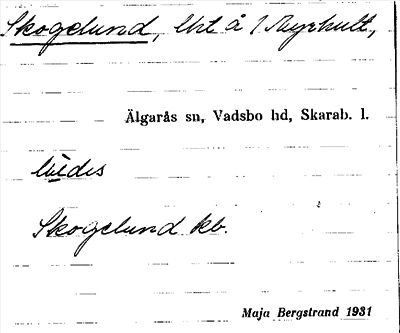 Skogelund, lht å 1 Myrhult,
Älgarås sn, Vadsbo hd, Skarab. l.
lüdes
Skogelund kb.
Maja Bergstrand 1931